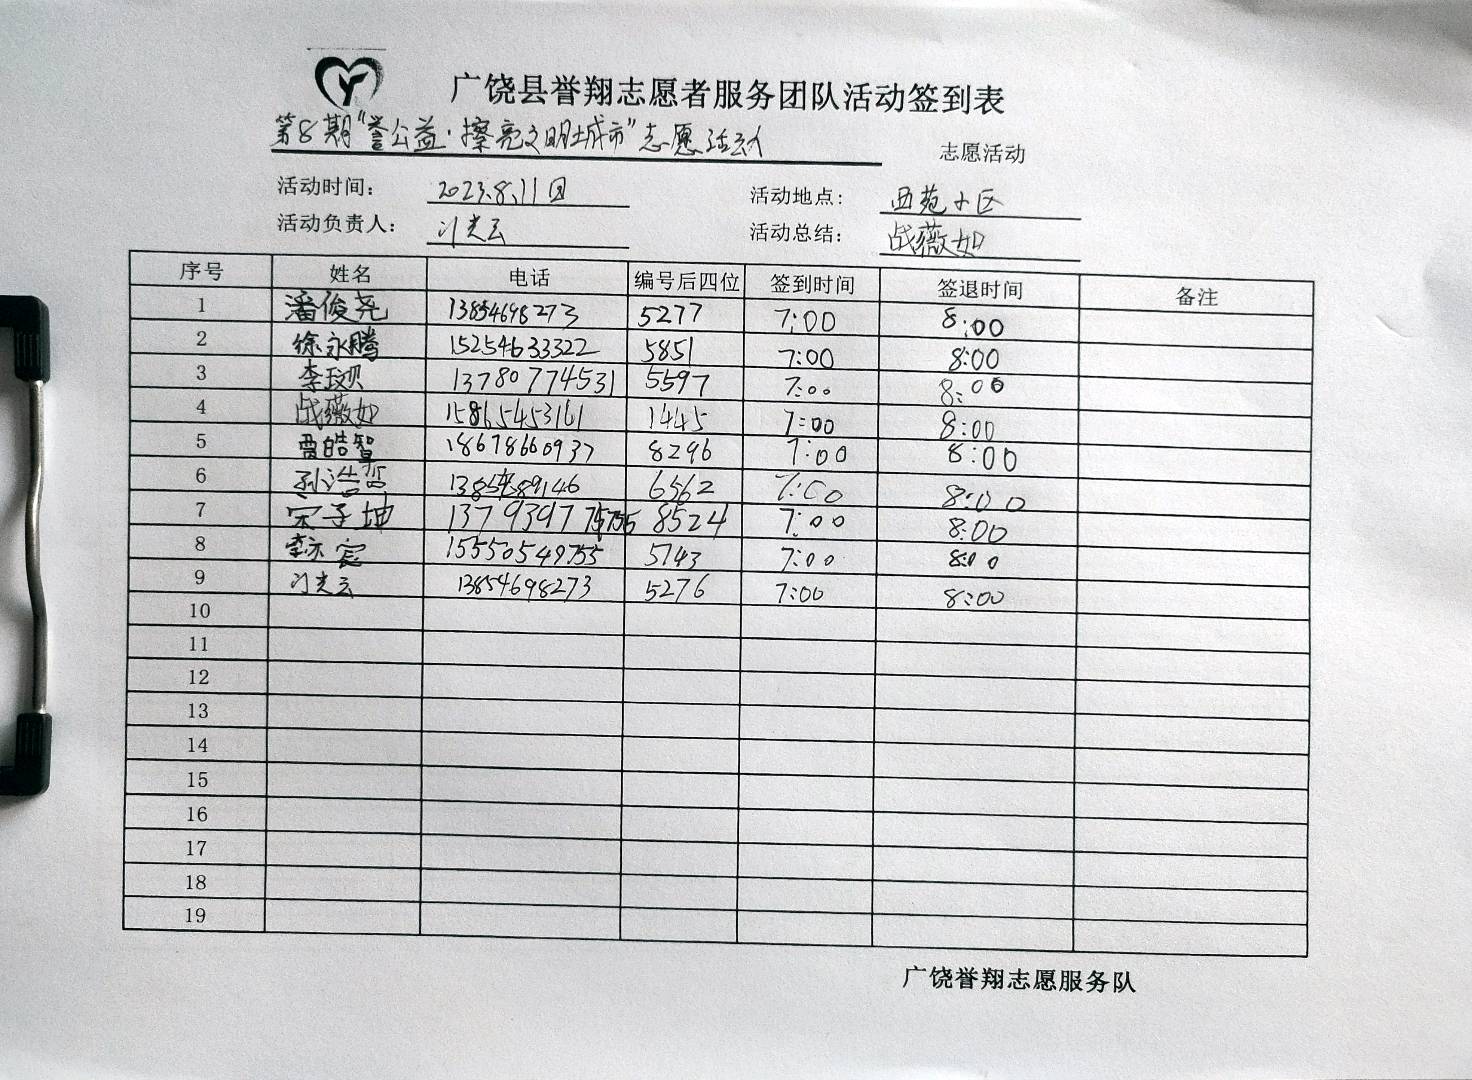 广饶县誉翔志愿者服务团队活动签到表
第8期"誉公益·擦亮文明城市"志愿活动 志愿活动
活动时间: 2023.8.11日 活动地点: 西苑小区
活动负责人: 光云 活动总结: 战薇如
序号 姓名 电话 编号后四位 签到时间 签退时间 备注
1 潘俊尧 13854698273 5277 7:00 8:00
2 徐永腾 15254633322 5851 7:00 8:00
3 李玟贝 13780774531 5597 7:00 8:00
4 战薇如 15865453161 1445 7:00 8:00
5 贾皓智 18678660937 8296 7:00 8:00
6 孙浩哲 6562 7:00 8:00
7 宋子坤 8524 7:00 8:00
8 李亦宸 15550549755 5743 7:00 8:00
9 光云 13854698273 5276 7:00 8:00
10
11
12
13
14
15
16
17
18
19
广饶誉翔志愿服务队